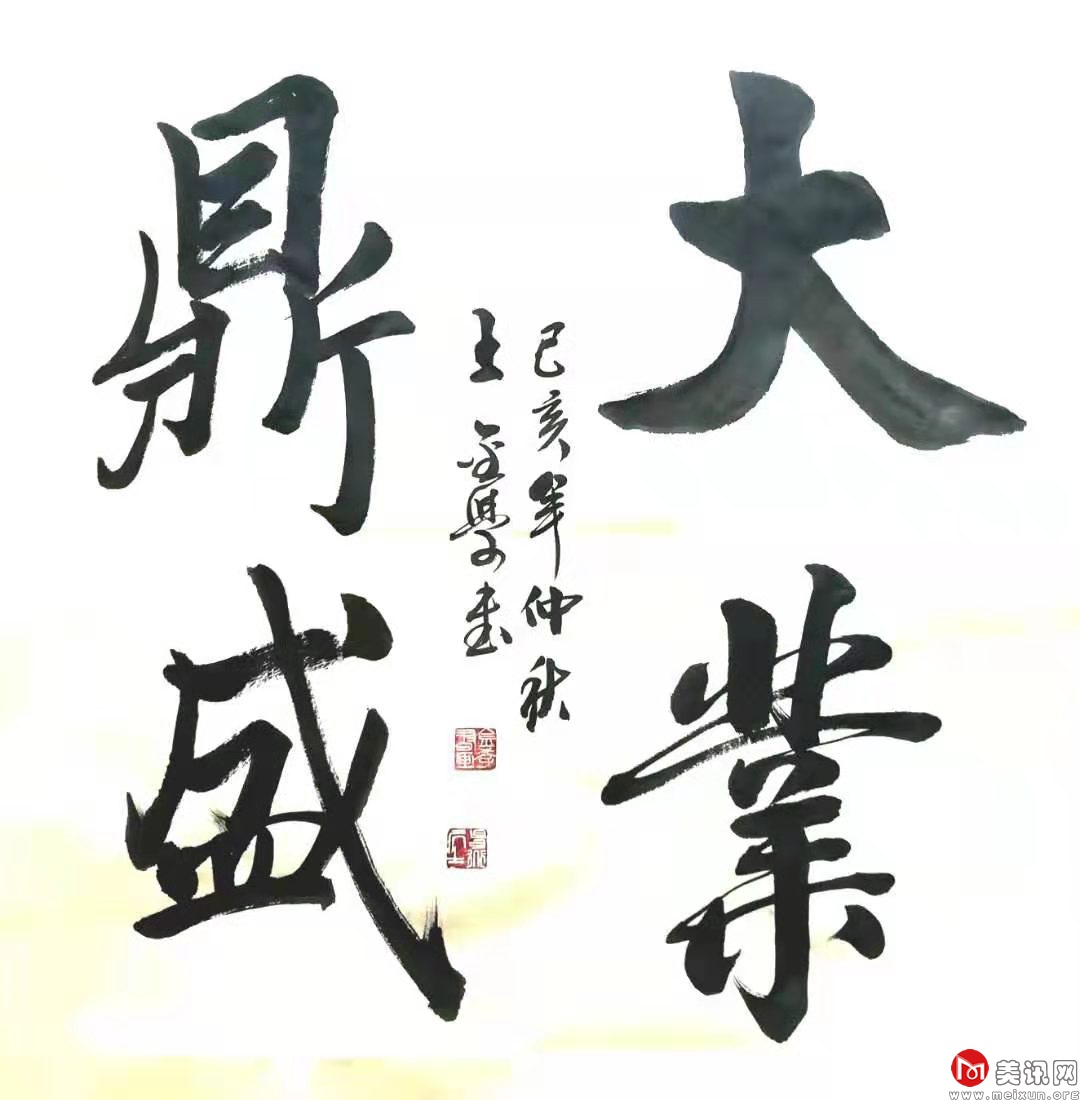 大業
鼎盛
己亥年仲秋
王金學書
美讯网
www.meixun.org